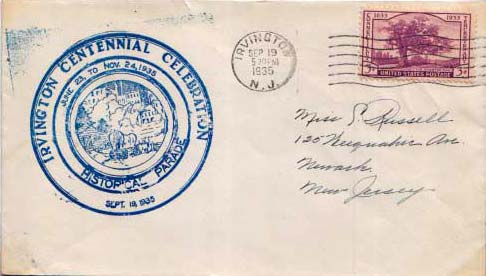 IRVINGTON CENTENNIAL CELEBRATION
JUNE 23, TO NOV. 24, 1935
HISTORICAL PARADE
SEPT. 19, 1935
IRVINGTON
SEP 19
1935
N.J.
1635 1935
3¢ UNITED STATES POSTAGE 3¢
Miss Russell
120
Newark
New Jersey